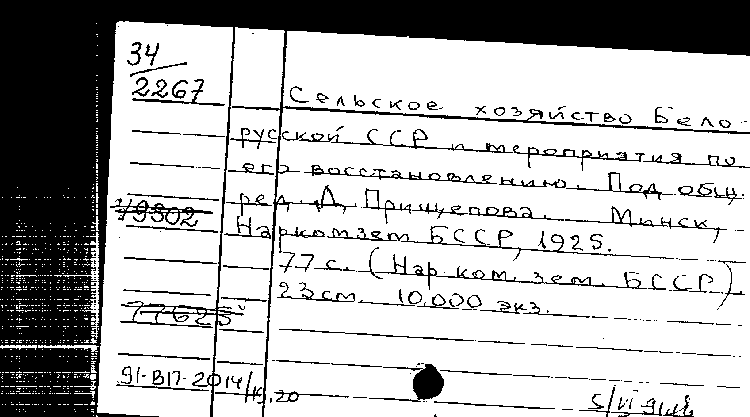 34
2267
Сельское хозяйство Бело-
русской ССР и мероприятия по
его восстановлению. Под общ.
ред. Д. Прищепова. Минск,
Наркомзем БССР, 1925.
77 с. (Нар. ком. зем. БССР)
23 см. 10.000 экз.
77625
91-ВП-2014/